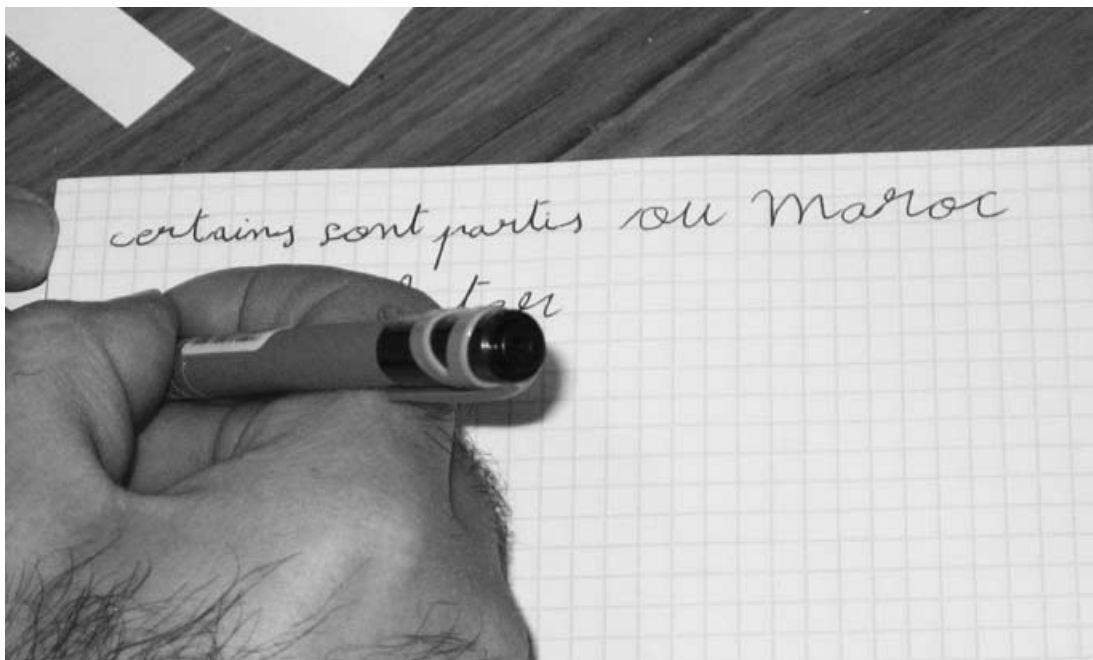 certains sont partis ou Maroc